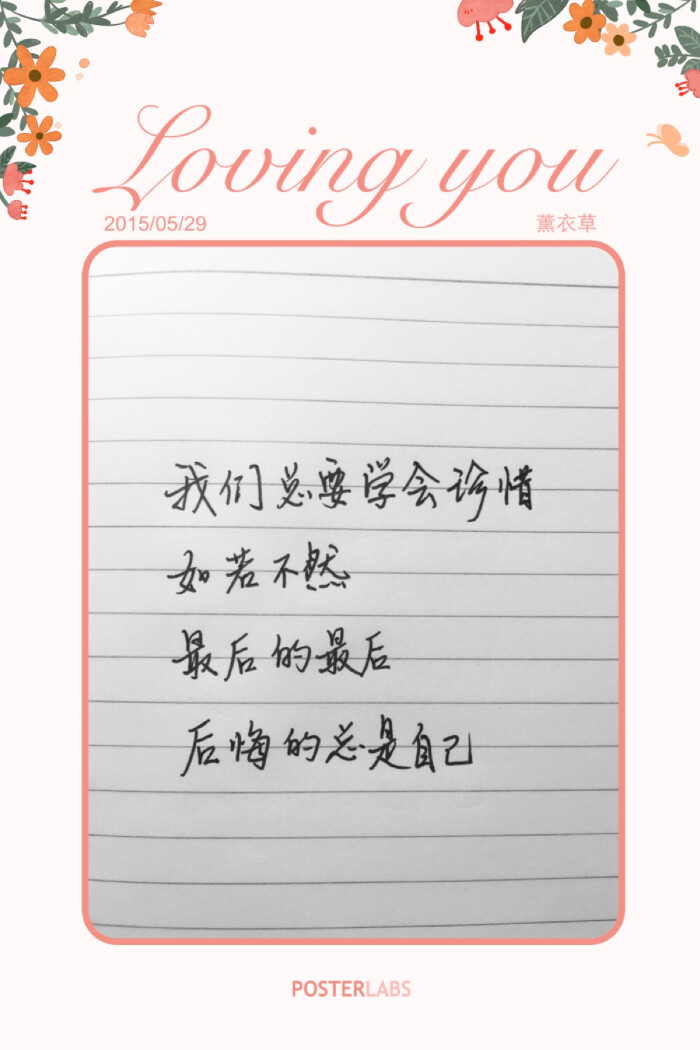 Loving you
2015/05/29 薰衣草
我们总要学会珍惜
如若不然
最后的最后
后悔的总是自己
POSTERLABS